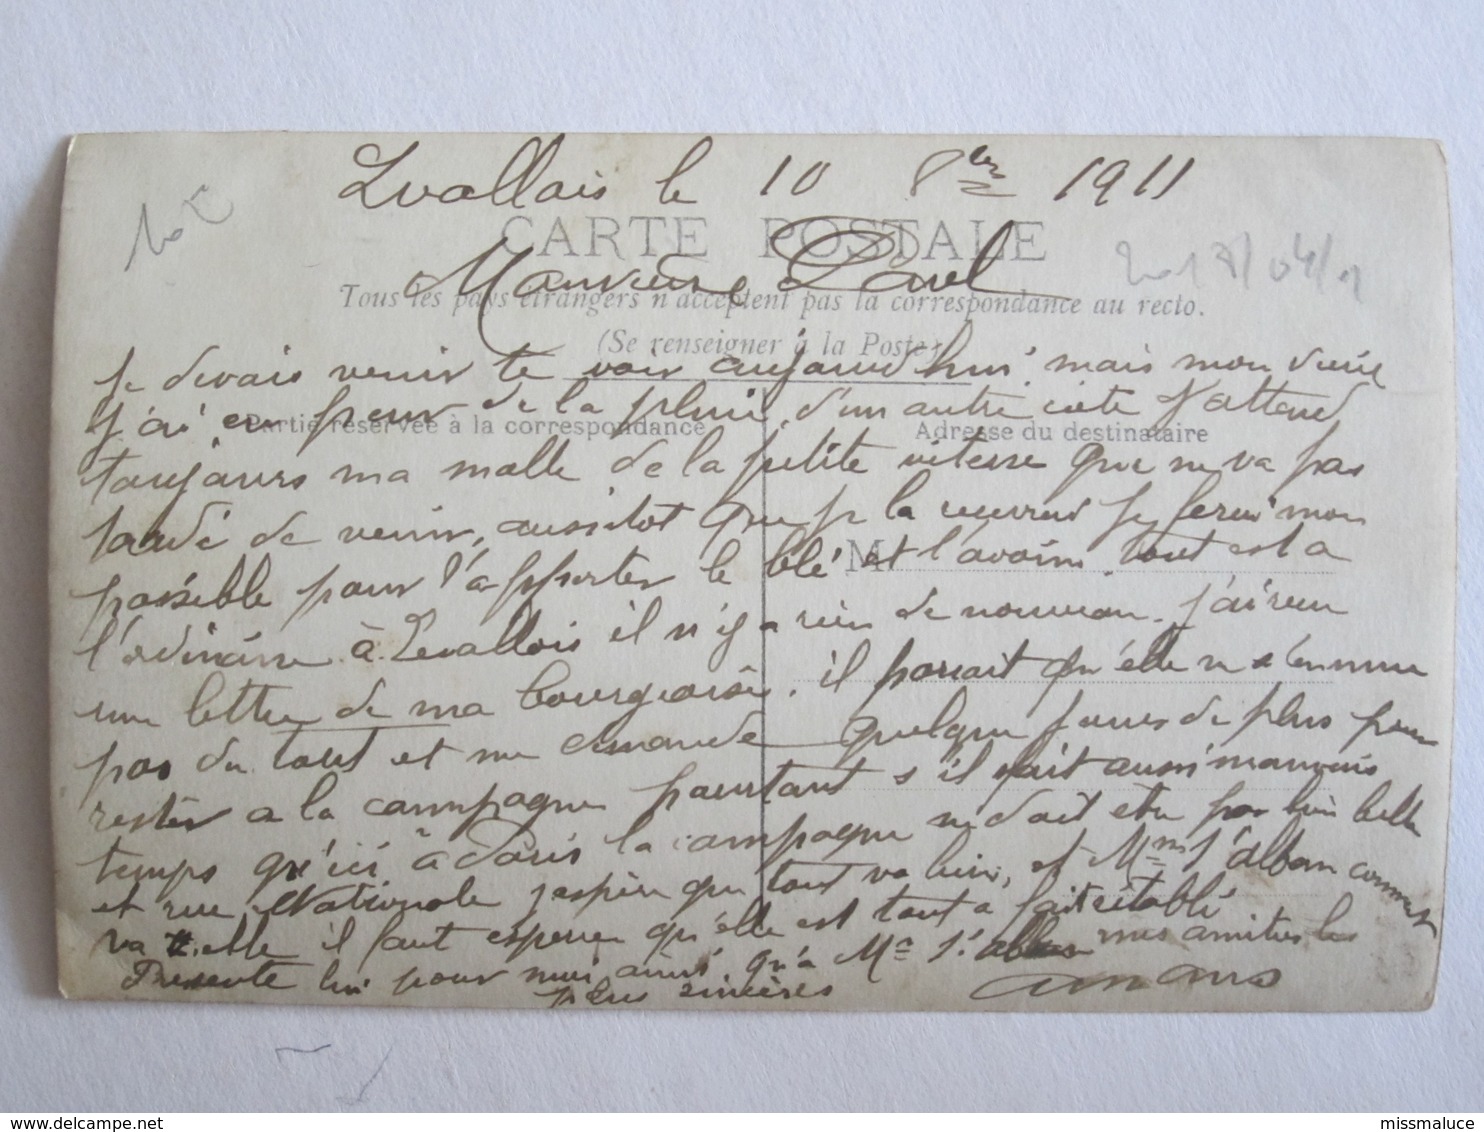 Lvallois le 10 8bre 1911
10 €
CARTE POSTALE
Monsieur Parel
Tous les pays étrangers n'acceptent pas la correspondance au recto.
(Se renseigner à la Poste)
Je devais venir te voir aujourd'hui mais mon vieux
j'ai eu peur de la pluie, d'un autre cote J'attend
Partie réservée à la correspondance
Adresse du destinataire
toujours ma malle de la petite vitesse que ne va pas
tardé de venir, aussitot que je la recevrai je ferai mon
possible pour t'apporter le blé et l'avoine. tout est a
M
l'ordinaire à Levallois il n'y a rien de nouveau. j'ai reçu
une lettre de ma bourgeoise. il parait qu'elle ne s'ennuie
pas du tout et me demande quelque jours de plus pour
rester a la campagne pourtant s'il fait aussi mauvais
temps qu'ici à Paris la campagne ne doit etre pas bien belle
et rue Nationale j'espère que tout va bien, et Mme St alban comment
va t-elle il faut esperer qu'elle est tout a fait rétabli
Presente lui pour moi ainsi qu'a Mr St alban mes amitiés les
plus sincères
missmaluce